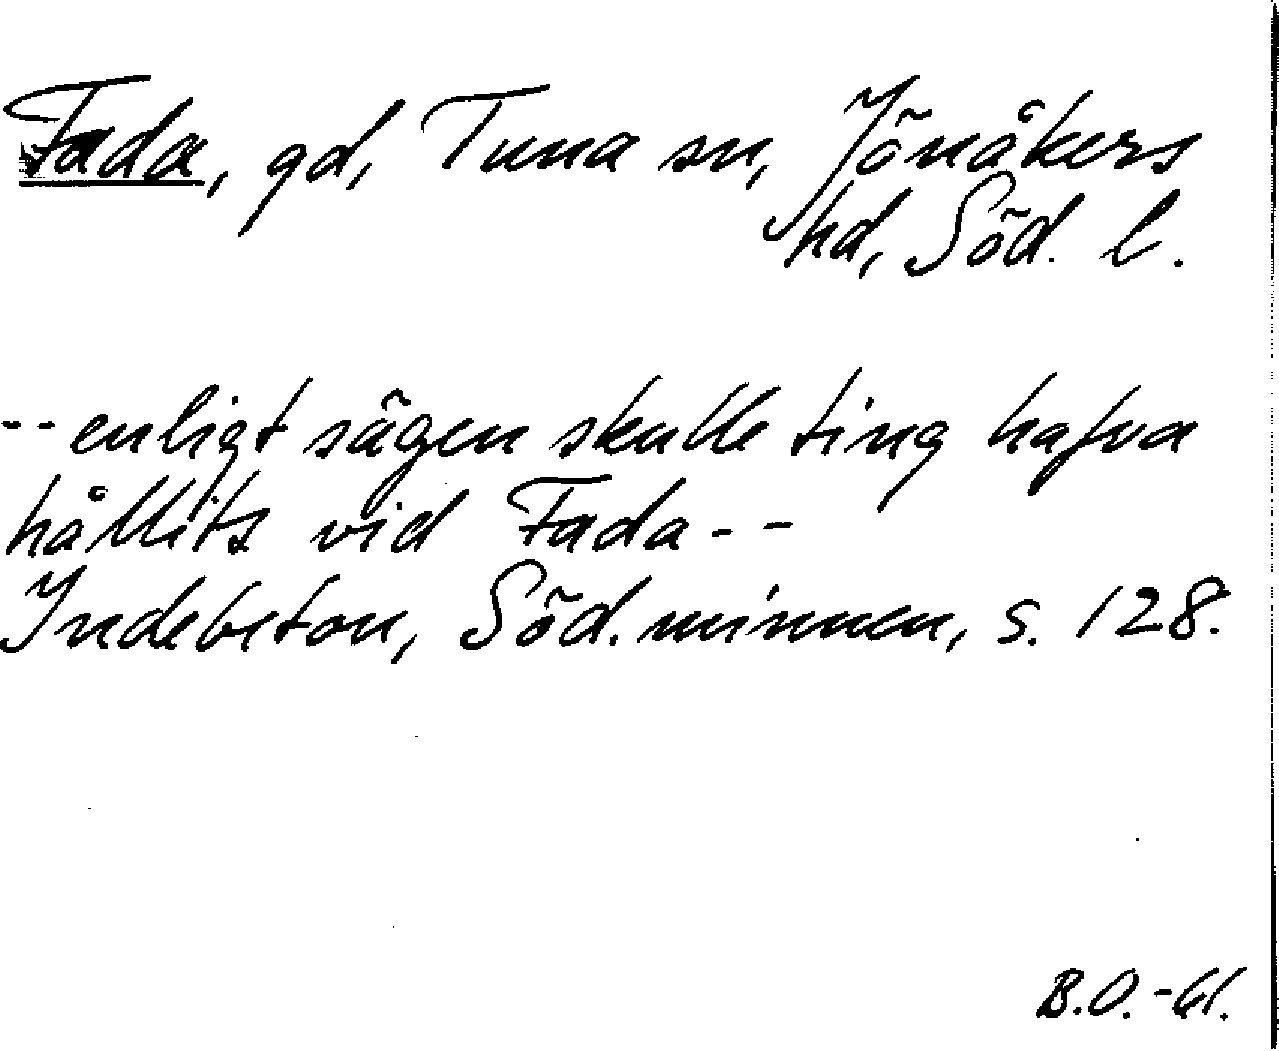 Fada, gd, Tuna sn, Jönåkers
hd, Söd. l.
-- enligt sägen skulle ting hafva
hållits vid Fada --
Indebetou, Söd. minnen, s. 128.
B.O. -61.